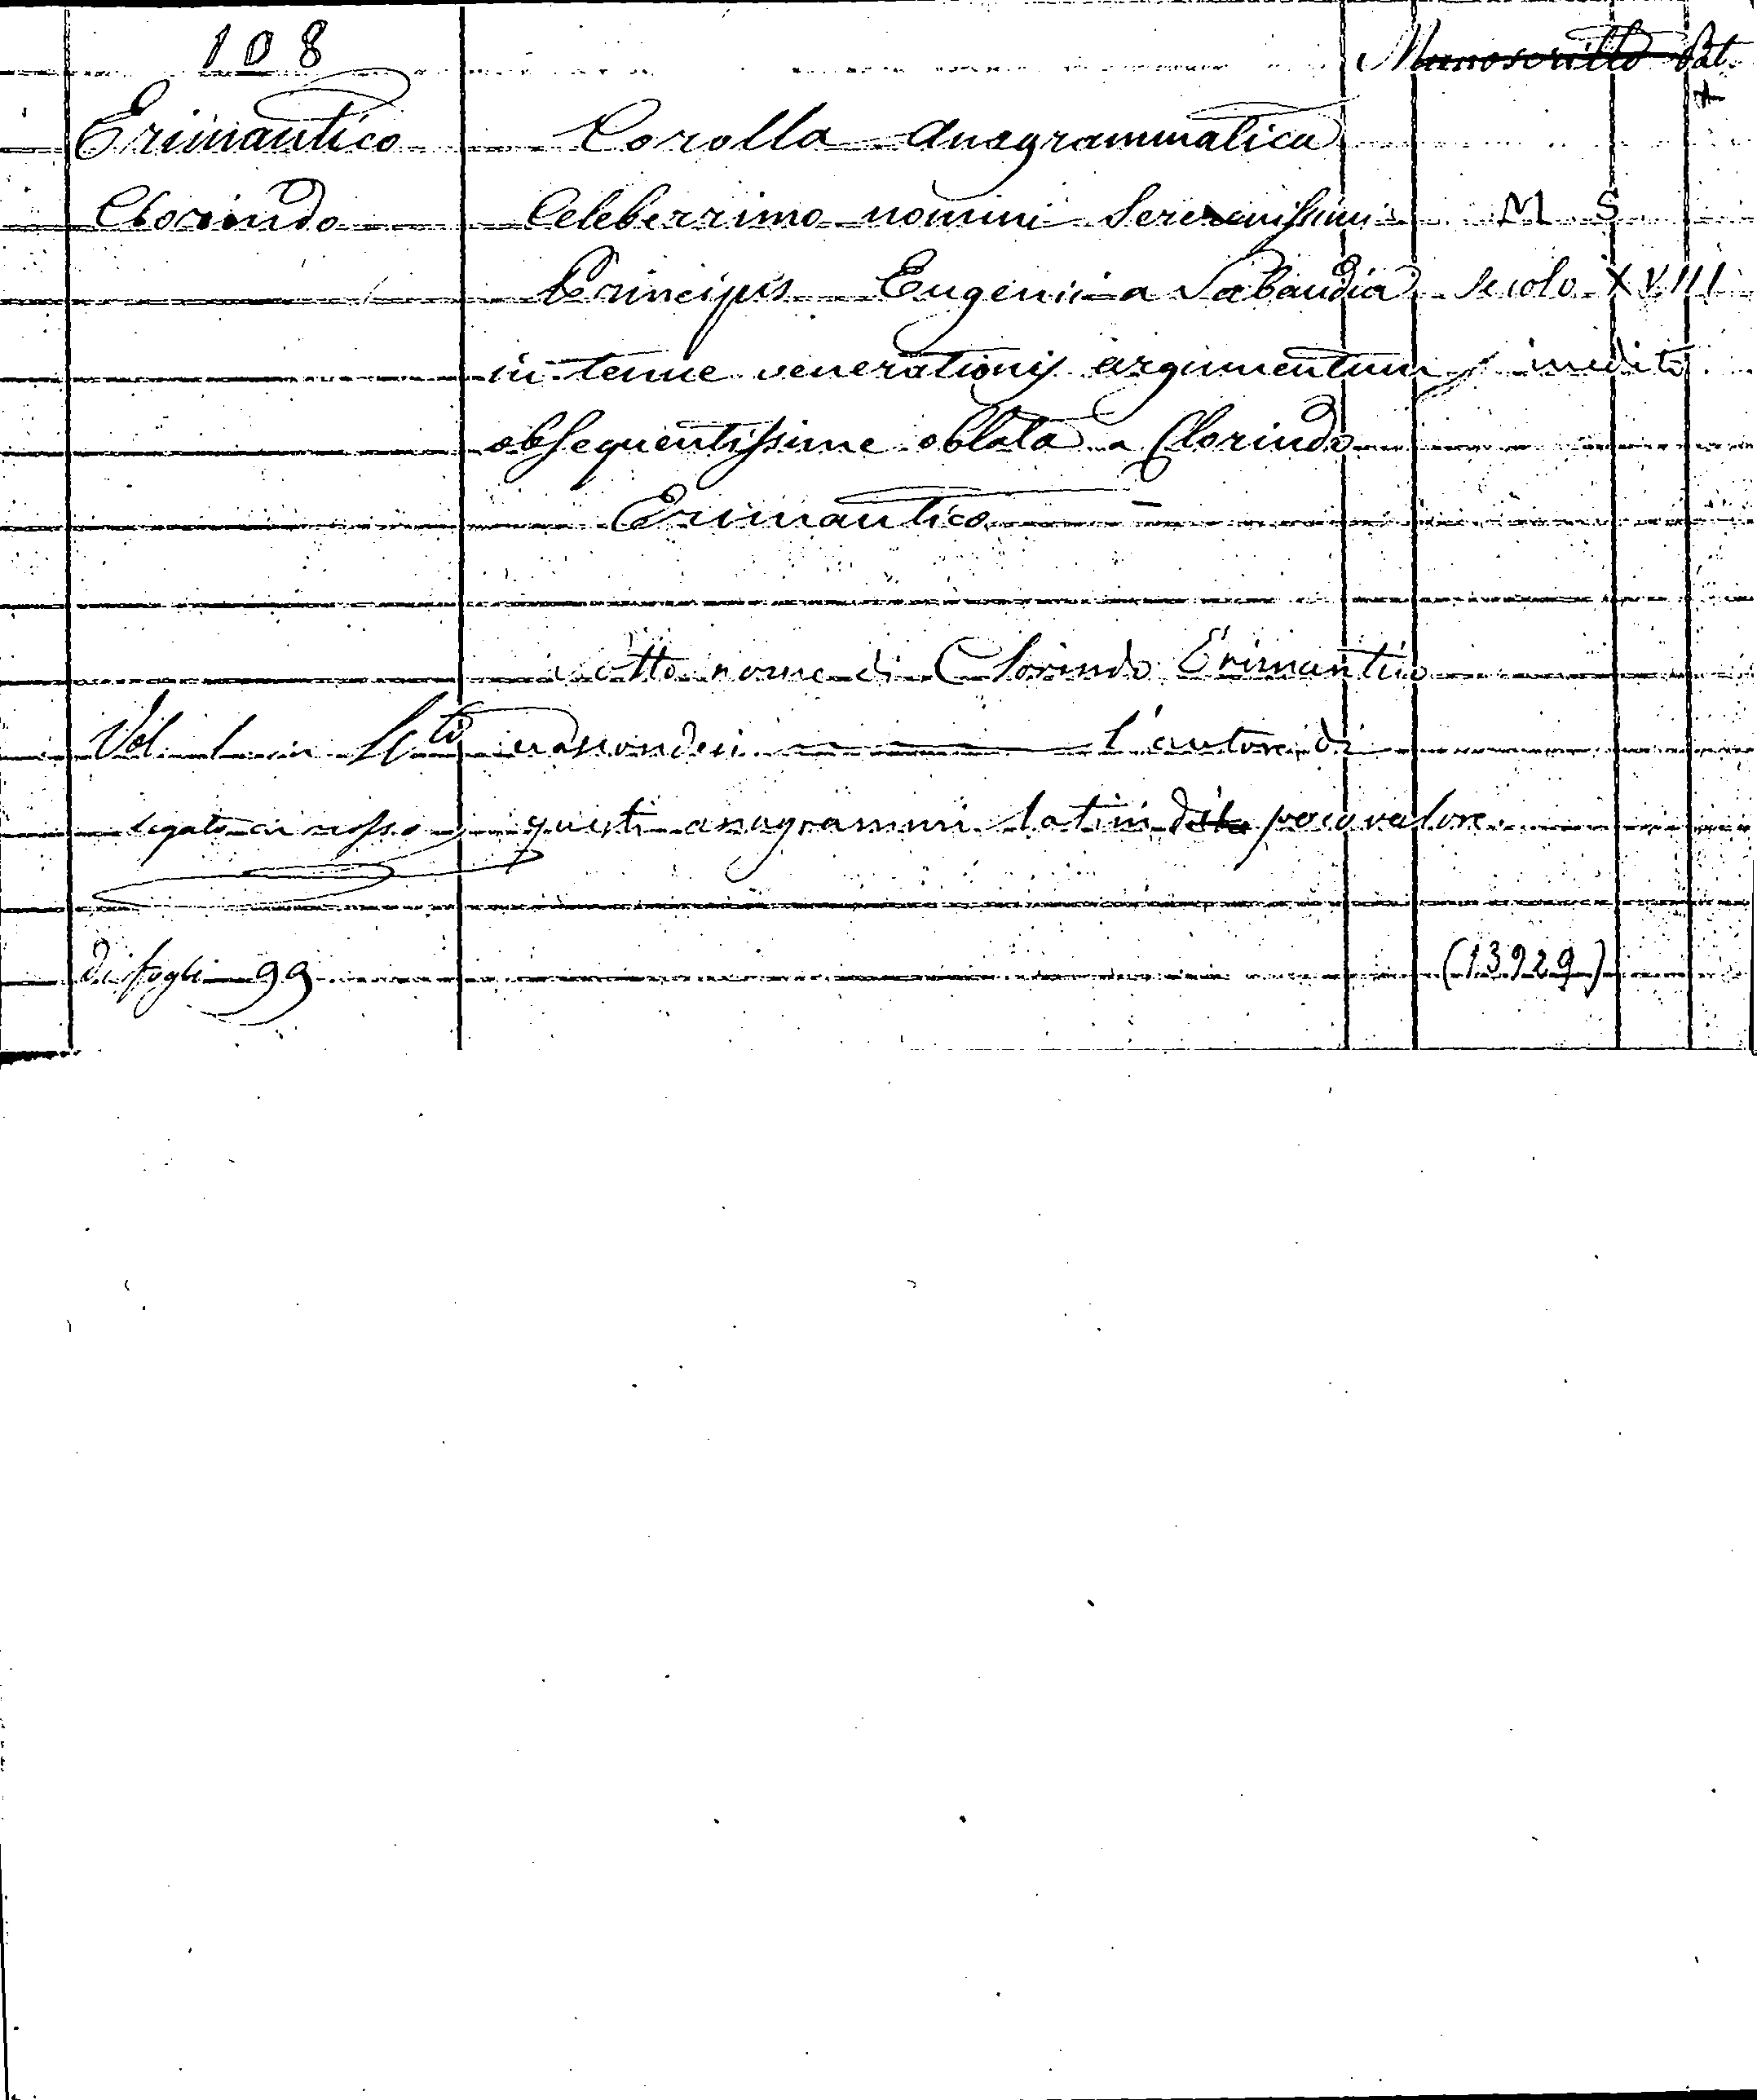 108
Manoscritto Lat.
Erimantico Corolla Anagrammatica
Clorindo Celeberrimo nomini Serenissimi M S
Principis Eugenii a Sabaudia Secolo XVIII
in tenue venerationis argumentum inedito
obsequentissime oblata a Clorindo
Erimantico
sotto nome di Clorindo Erimantico
Vol. 1 in l'autore di
legato in rosso questi anagrammi latini di poco valore.
di fogli 99 (13929)